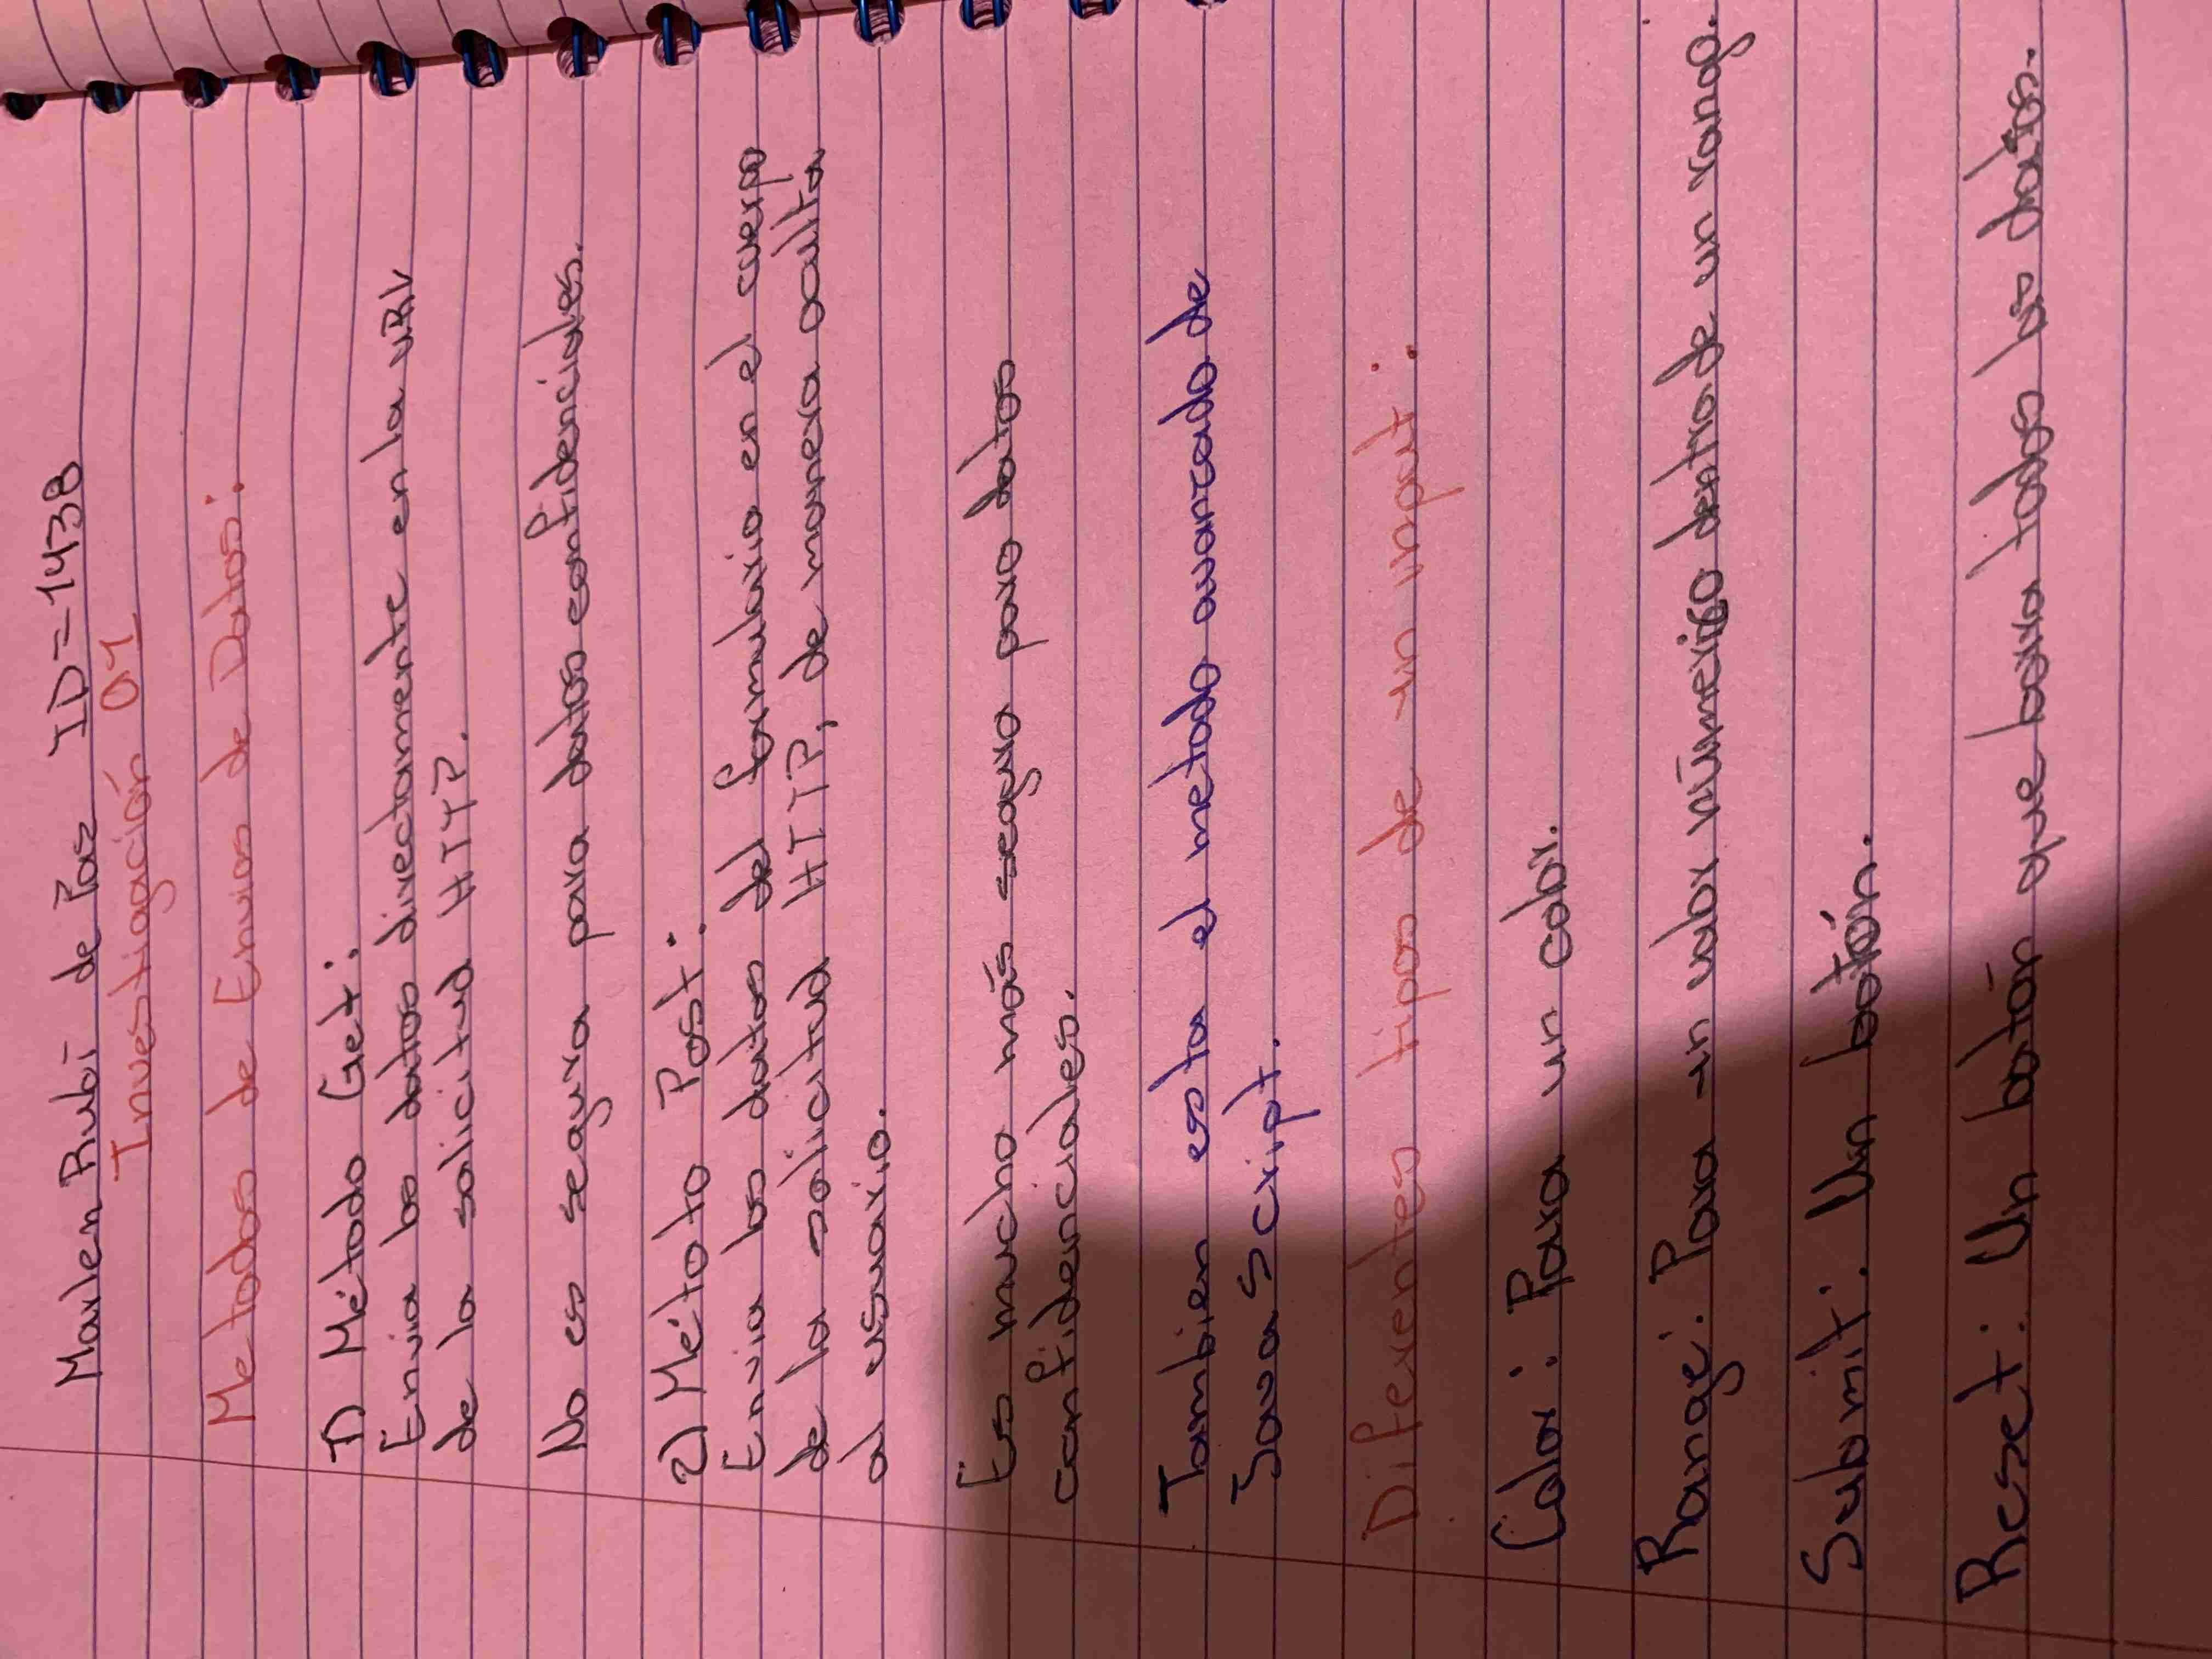 Marlen Rubí de Paz ID=1438
Investigación 01
Metodos de Envios de Datos:
1) Método Get:
Envia los datos directamente en la URL
de la solicitud HTTP.
No es segura para datos confidenciales.
2) Método Post:
Envia los datos del formulario en el cuerpo
de la solicitud HTTP, de manera oculta
al usuario.
Es mucho más seguro para datos
confidenciales.
Tambien esta el metodo avanzado de
JavaScript.
Diferentes tipos de un input:
Color: Para un color.
Range: Para un valor númerico dentro de un rango.
Submit: Un botón.
Reset: Un botón que borra todos los datos.